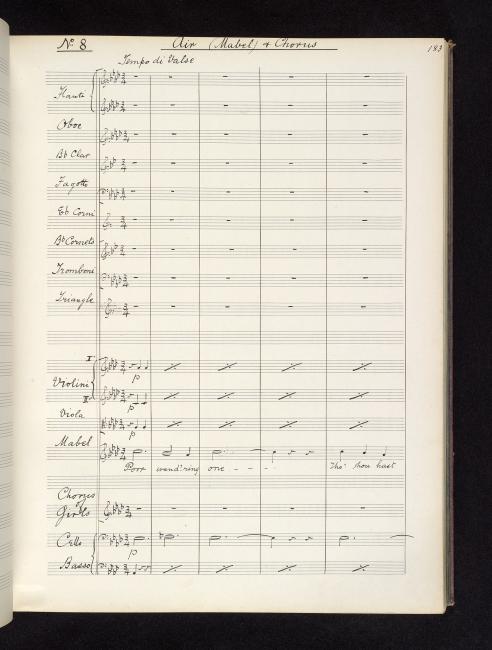 No. 8 Air (Mabel) & Chorus 183
Tempo di Valse
Flauti
Oboe
Bb Clar
Fagotto
Eb Corni
Bb Cornets
Tromboni
Triangle
I
Violini
p
II
p
Viola
p
Mabel
Poor wand'ring one - - - Tho' thou hast
Chorus
of
Girls
Cello
p
Basso